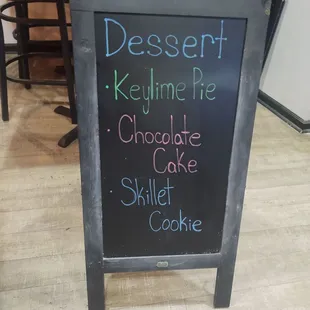 Dessert
· Keylime Pie
· Chocolate
Cake
· Skillet
Cookie